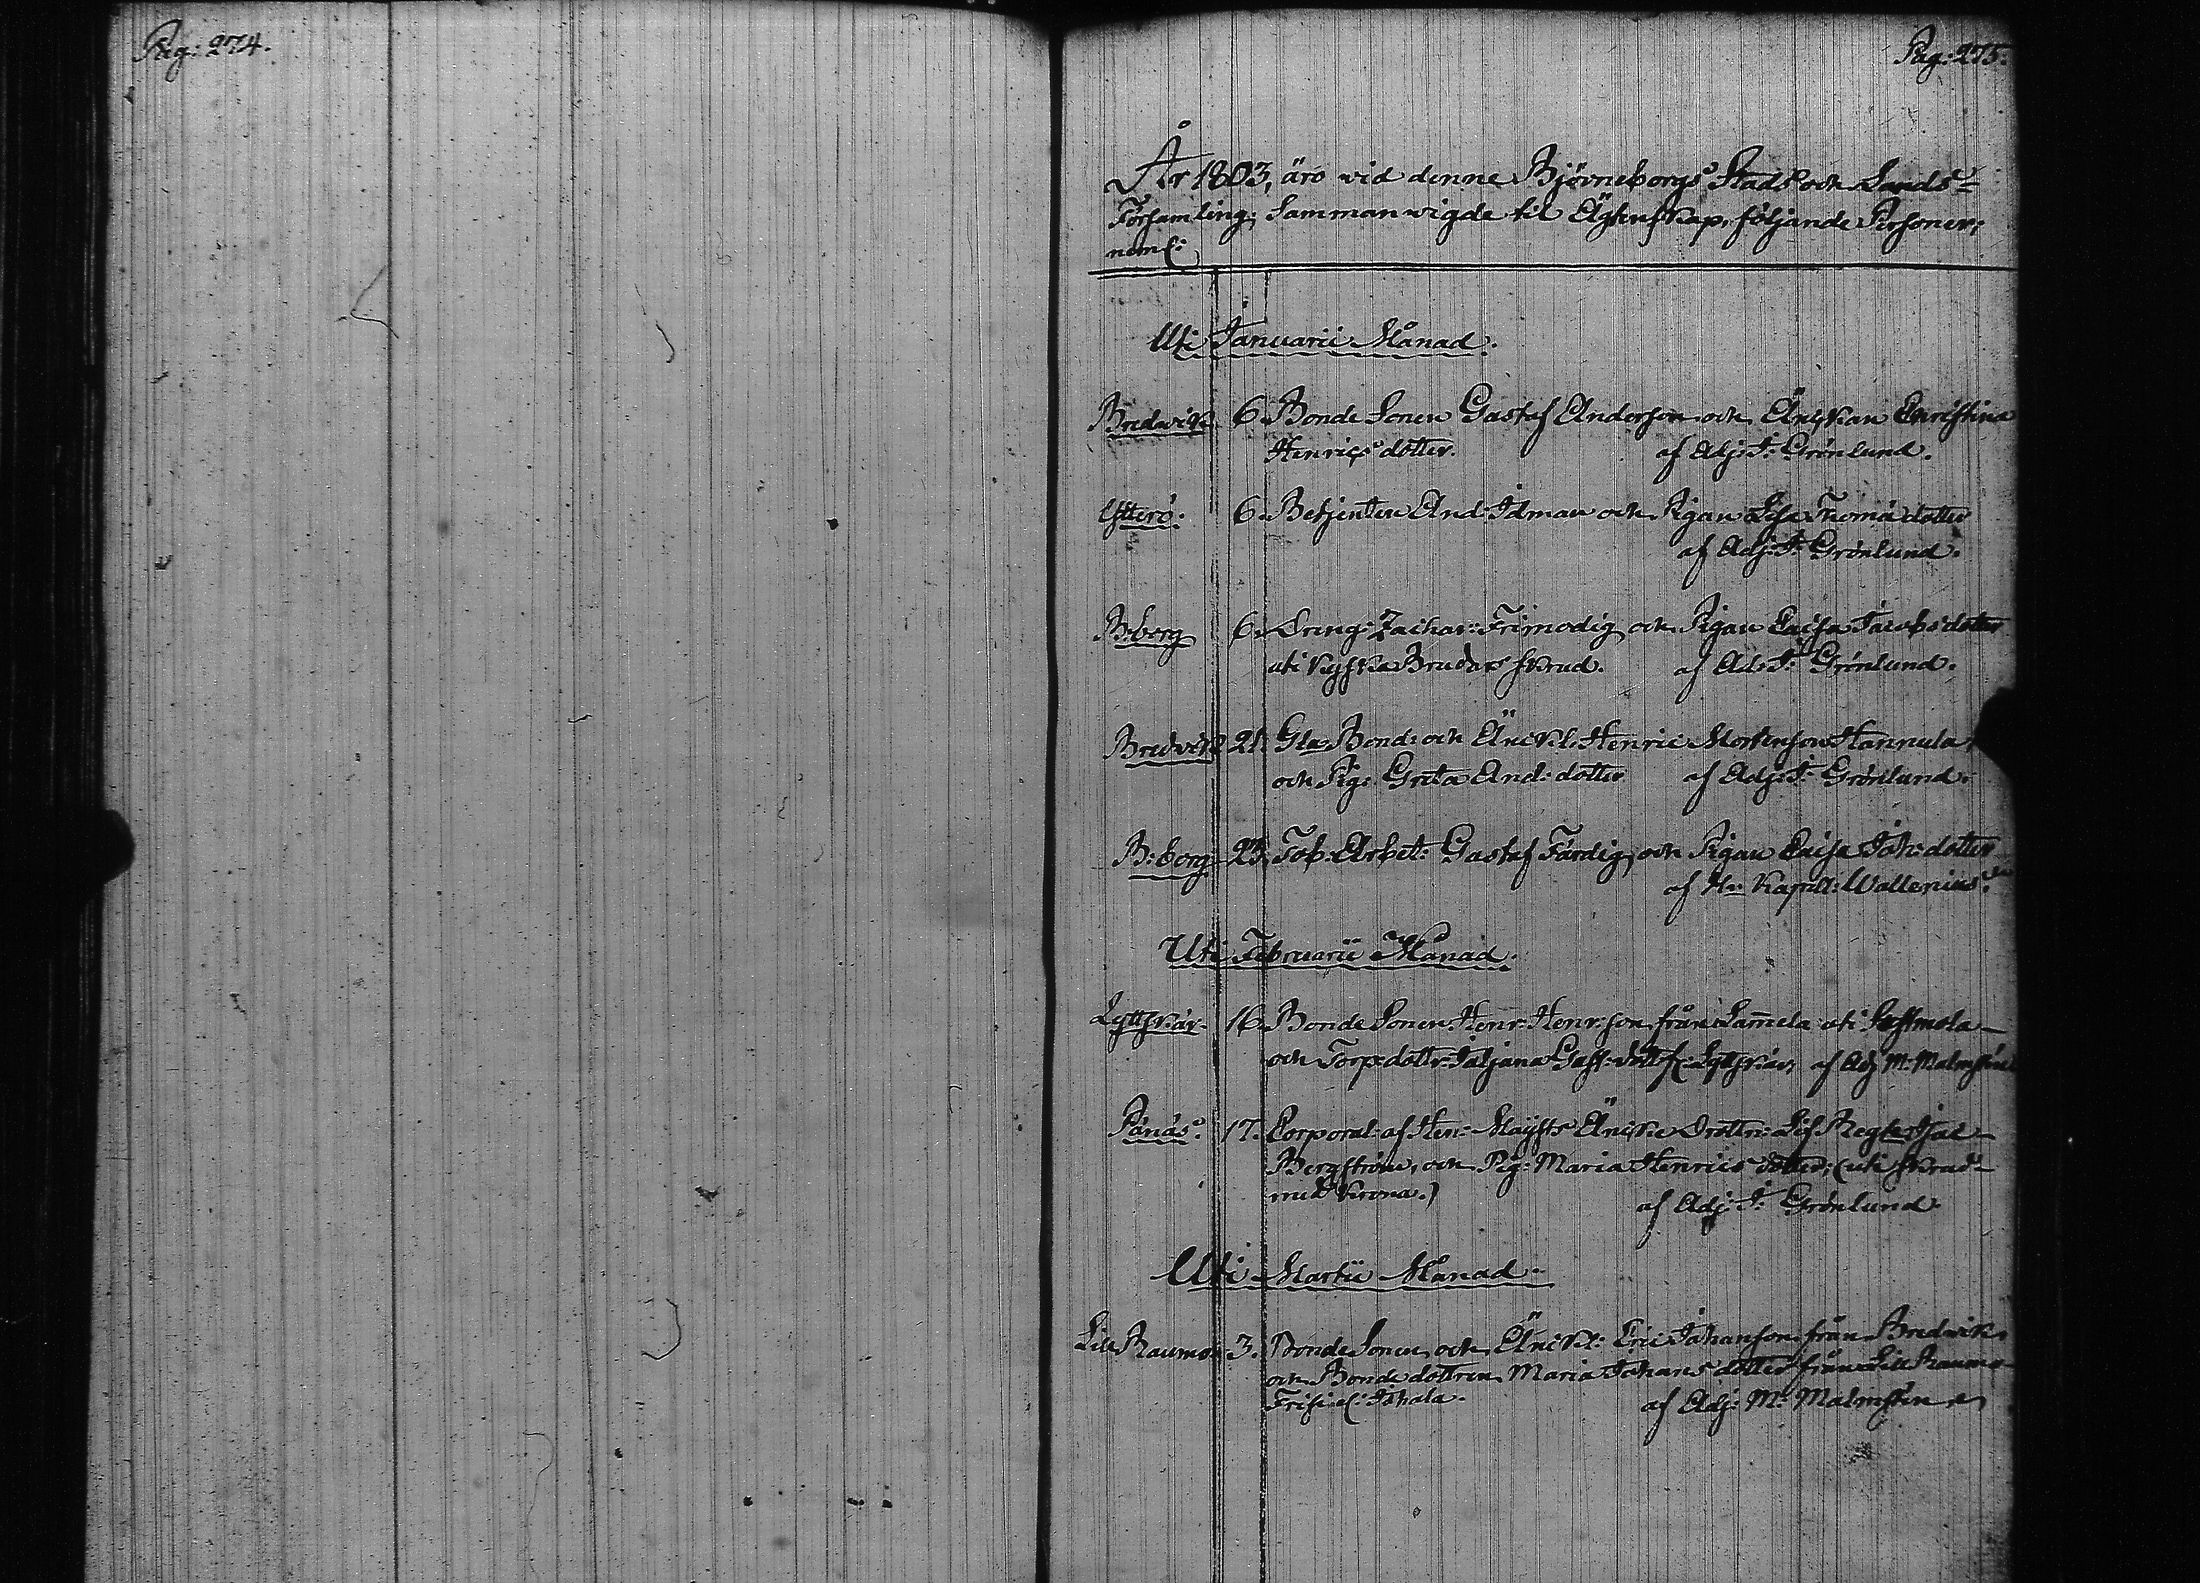 Pag: 274.
Pag: 275.
År 1803, äro vid denne Björneborgs Stads och Lands=
Församling, Sammanwigde til Ägtenskap, följande Personer,
neml:
Uti Januarii Månad.
Bredwik 6. Bonde Sonen Gustaf Anderson och Änkan Christina
Henrics dotter. af Adj: J: Grönlund.
Ytterö. 6. Betjenten And: Idman och Pigan Lisa Thomä dotter
af Adj: J: Grönlund.
B:borg 6. Dreng: Zachar: Frimodig och Pigan Caisa Jacobs dotter
uti Kyska Brudas skrud. af Adj: J: Grönlund.
Bredvik 21. Gla Bond: och Änckl: Henric Mortenson Hannula
och Pig: Greta And: dotter af Adj: J: Grönlund.
B:borg 23. Tob: Arbet: Gustaf Färdig, och Pigan Caisa Joh: dotter
af Hr Kapell: Wallenius.
Uti Februarii Månad.
Lyttskär. 16. Bonde Sonen Henr: Henr:son från Sam̄ela uti Sastmola
och Torp: dottr: Tatjana Gust: dott: f: Lyttskär, af Adj M: Malmsten
Pånäs. 17. Corporal: af Hen: Mayst:s Änke Drottn: Lif Reg:te Isac
Bergström, och Pig: Maria Henrics dotter; (uti skrud
med Krona.) af Adj: J: Grönlund.
Uti Martii Månad.
Lill Raumo 3. Bonde Sonen och Änckl: Eric Johanson från Bredvik
och Bonde dottren Maria Johans dotter från Lill Raumo
Frisi el: Johala. af Adj: M: Malmsten